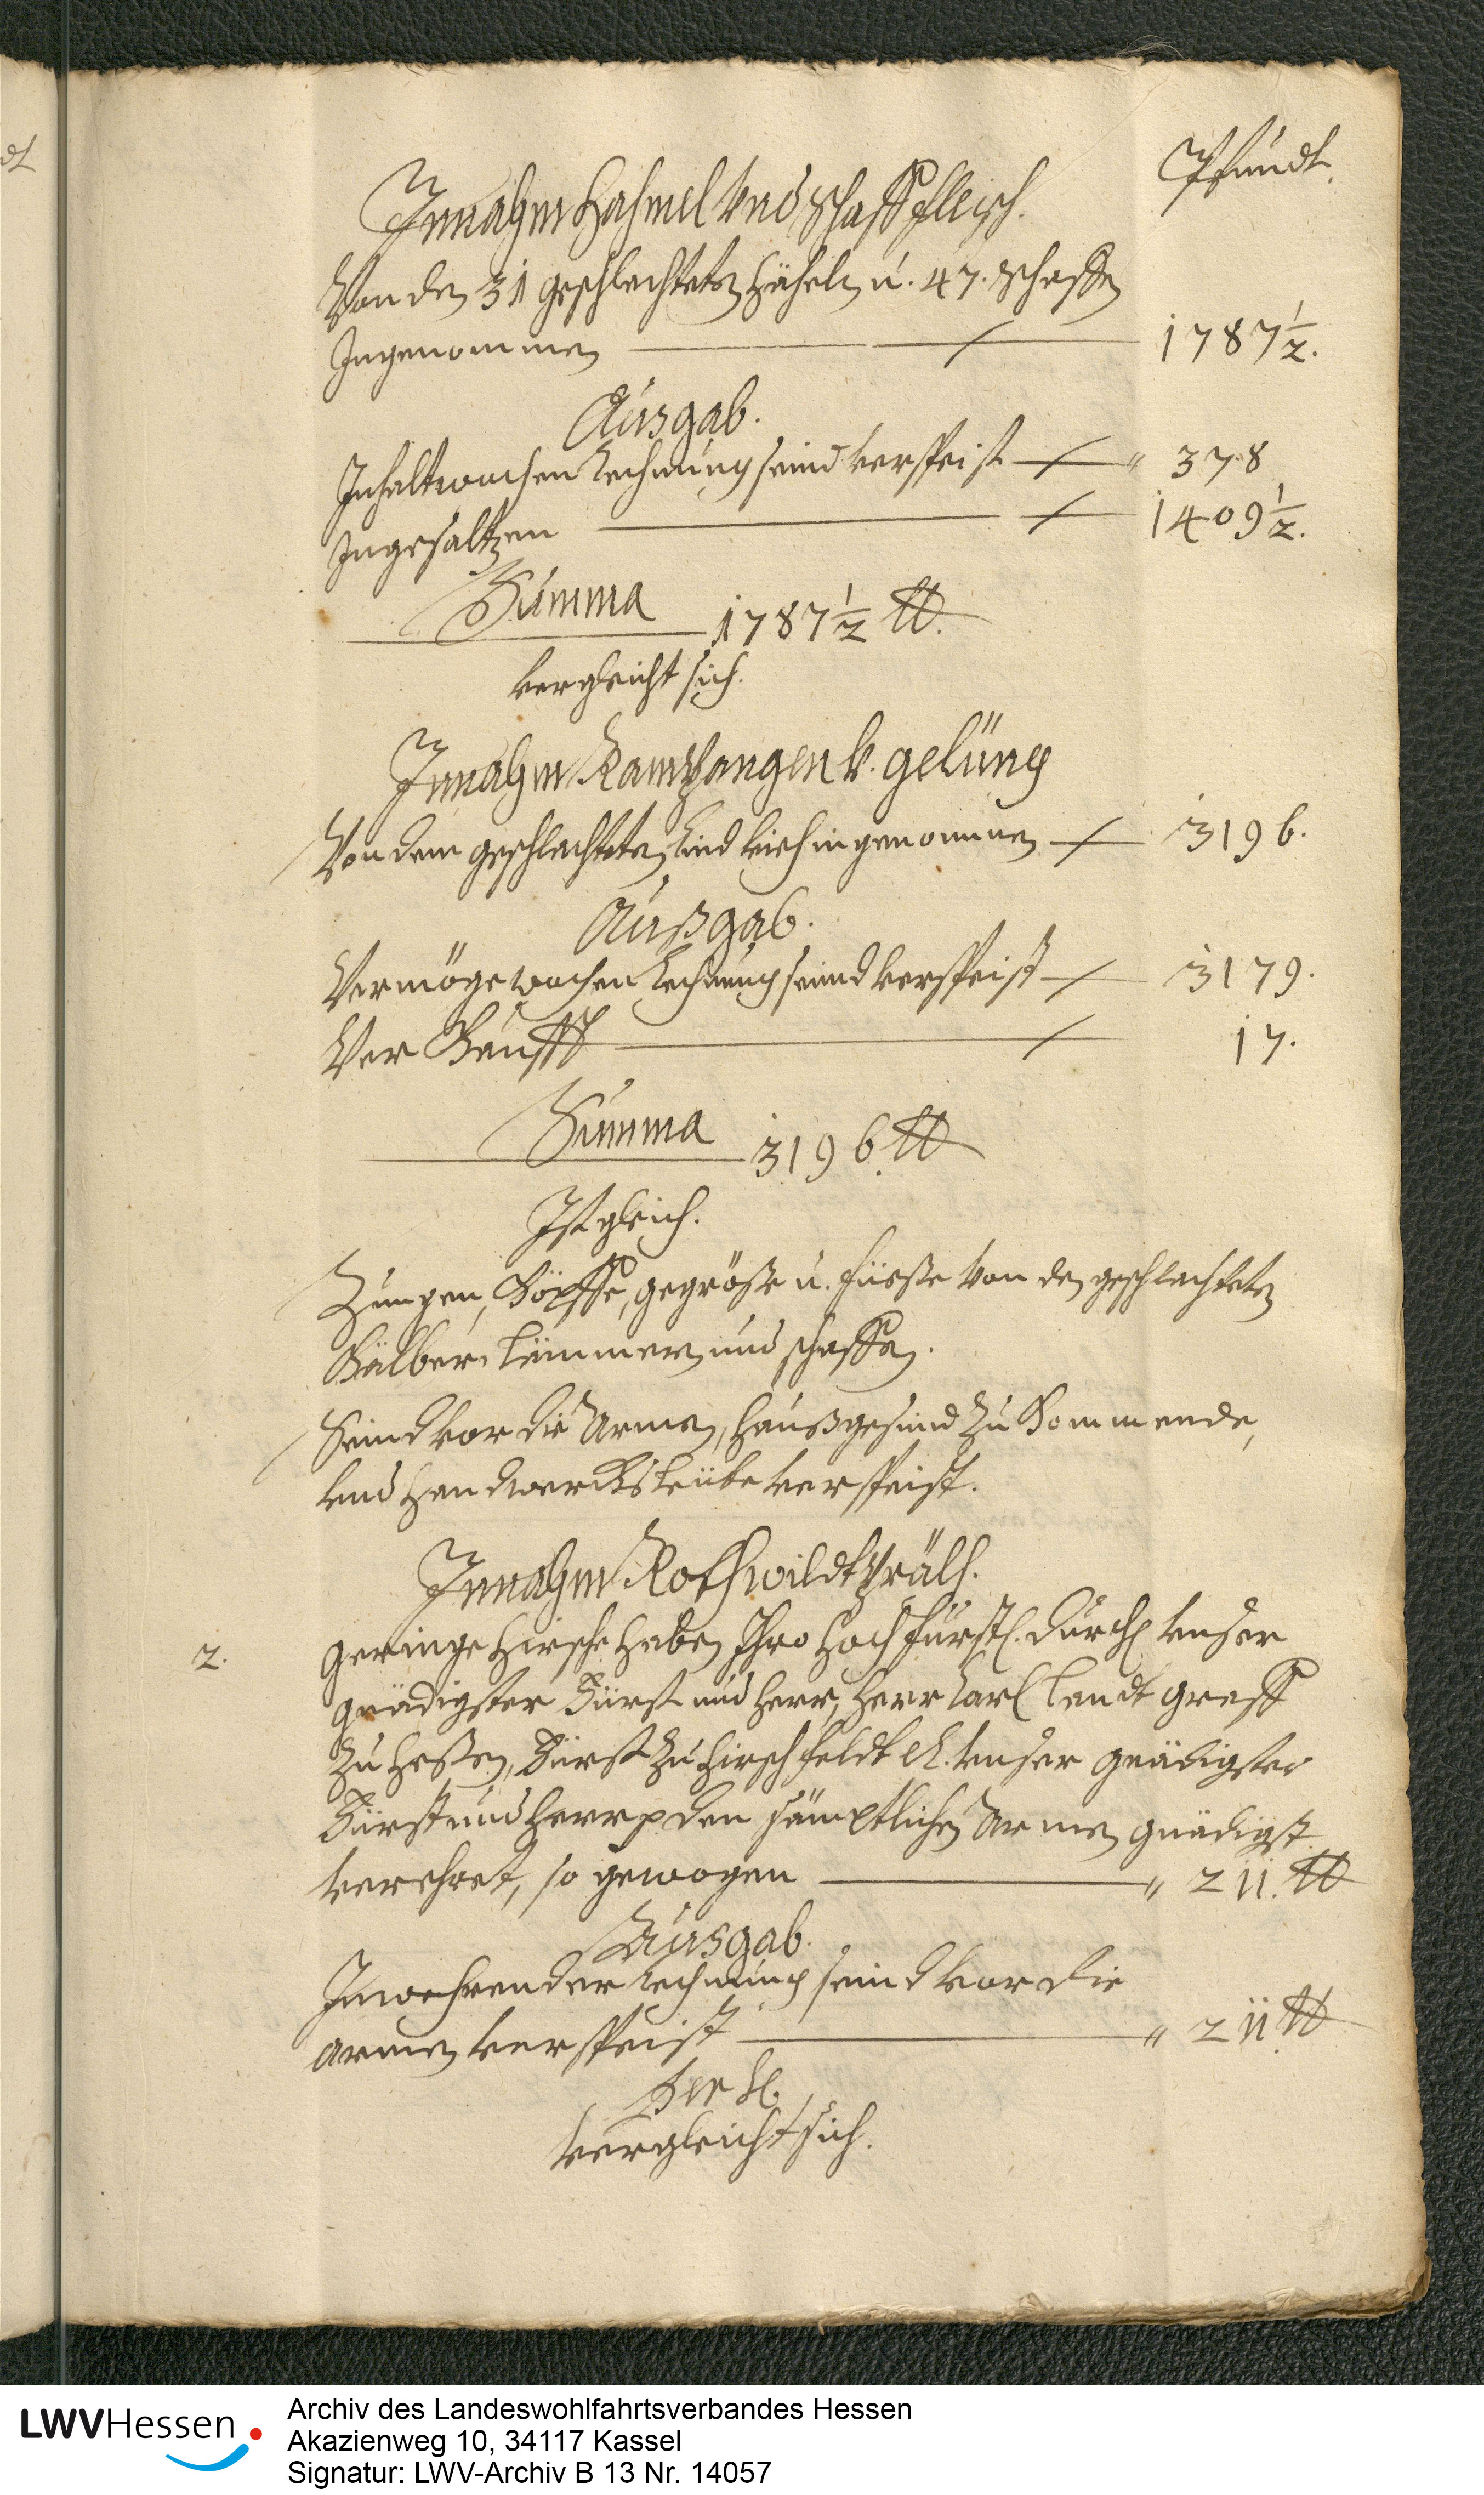 Pfundt.
Innahm Hahmel vnd Schafffleisch.
Von den 31 geschlachteten Hämeln u. 47. Schaffen
Ingenommen 1787 1/2.
Ausgab.
Inhalt wochen Rechnung seind verspeist " 378
Ingesaltzen 1409 1/2.
Summa 1787 1/2 ℔.
vergleicht sich.
Innahm Kampangen v. gelüng
Von dem geschlachteten Rind Viehe ingenommen 3196.
Außgab.
Vermöge wochen Rechnung seind verspeist 3179.
Ver Kaufft 17.
Summa 3196. ℔
Ist gleich.
Zungen, Köpffe, gegröße u. füsse von den geschlachteten
Kälber, Lämmern und schaffen.
Seind vor die Armen, Haußgesind zu Kommende,
vnd Handwercks Leüte verspeist.
Innahm Rothwildtprätt.
2. geringe Hirsche haben Ihro Hochfürstl. Durchl vnser
gnädigster Fürst und Herr, Herr Carl Landt Graff
zu Heßen, Fürst zu Hirschfeldt etc. vnser gnädigster
Fürst und Herr p den sämptlichen Armen gnädigst
verehret, so gewogen " 211. ℔
Ausgab.
Inwehrender Rechnung seind vor die
armen verspeist " 211. ℔
vergleicht sich.
LWVHessen
Archiv des Landeswohlfahrtsverbandes Hessen
Akazienweg 10, 34117 Kassel
Signatur: LWV-Archiv B 13 Nr. 14057